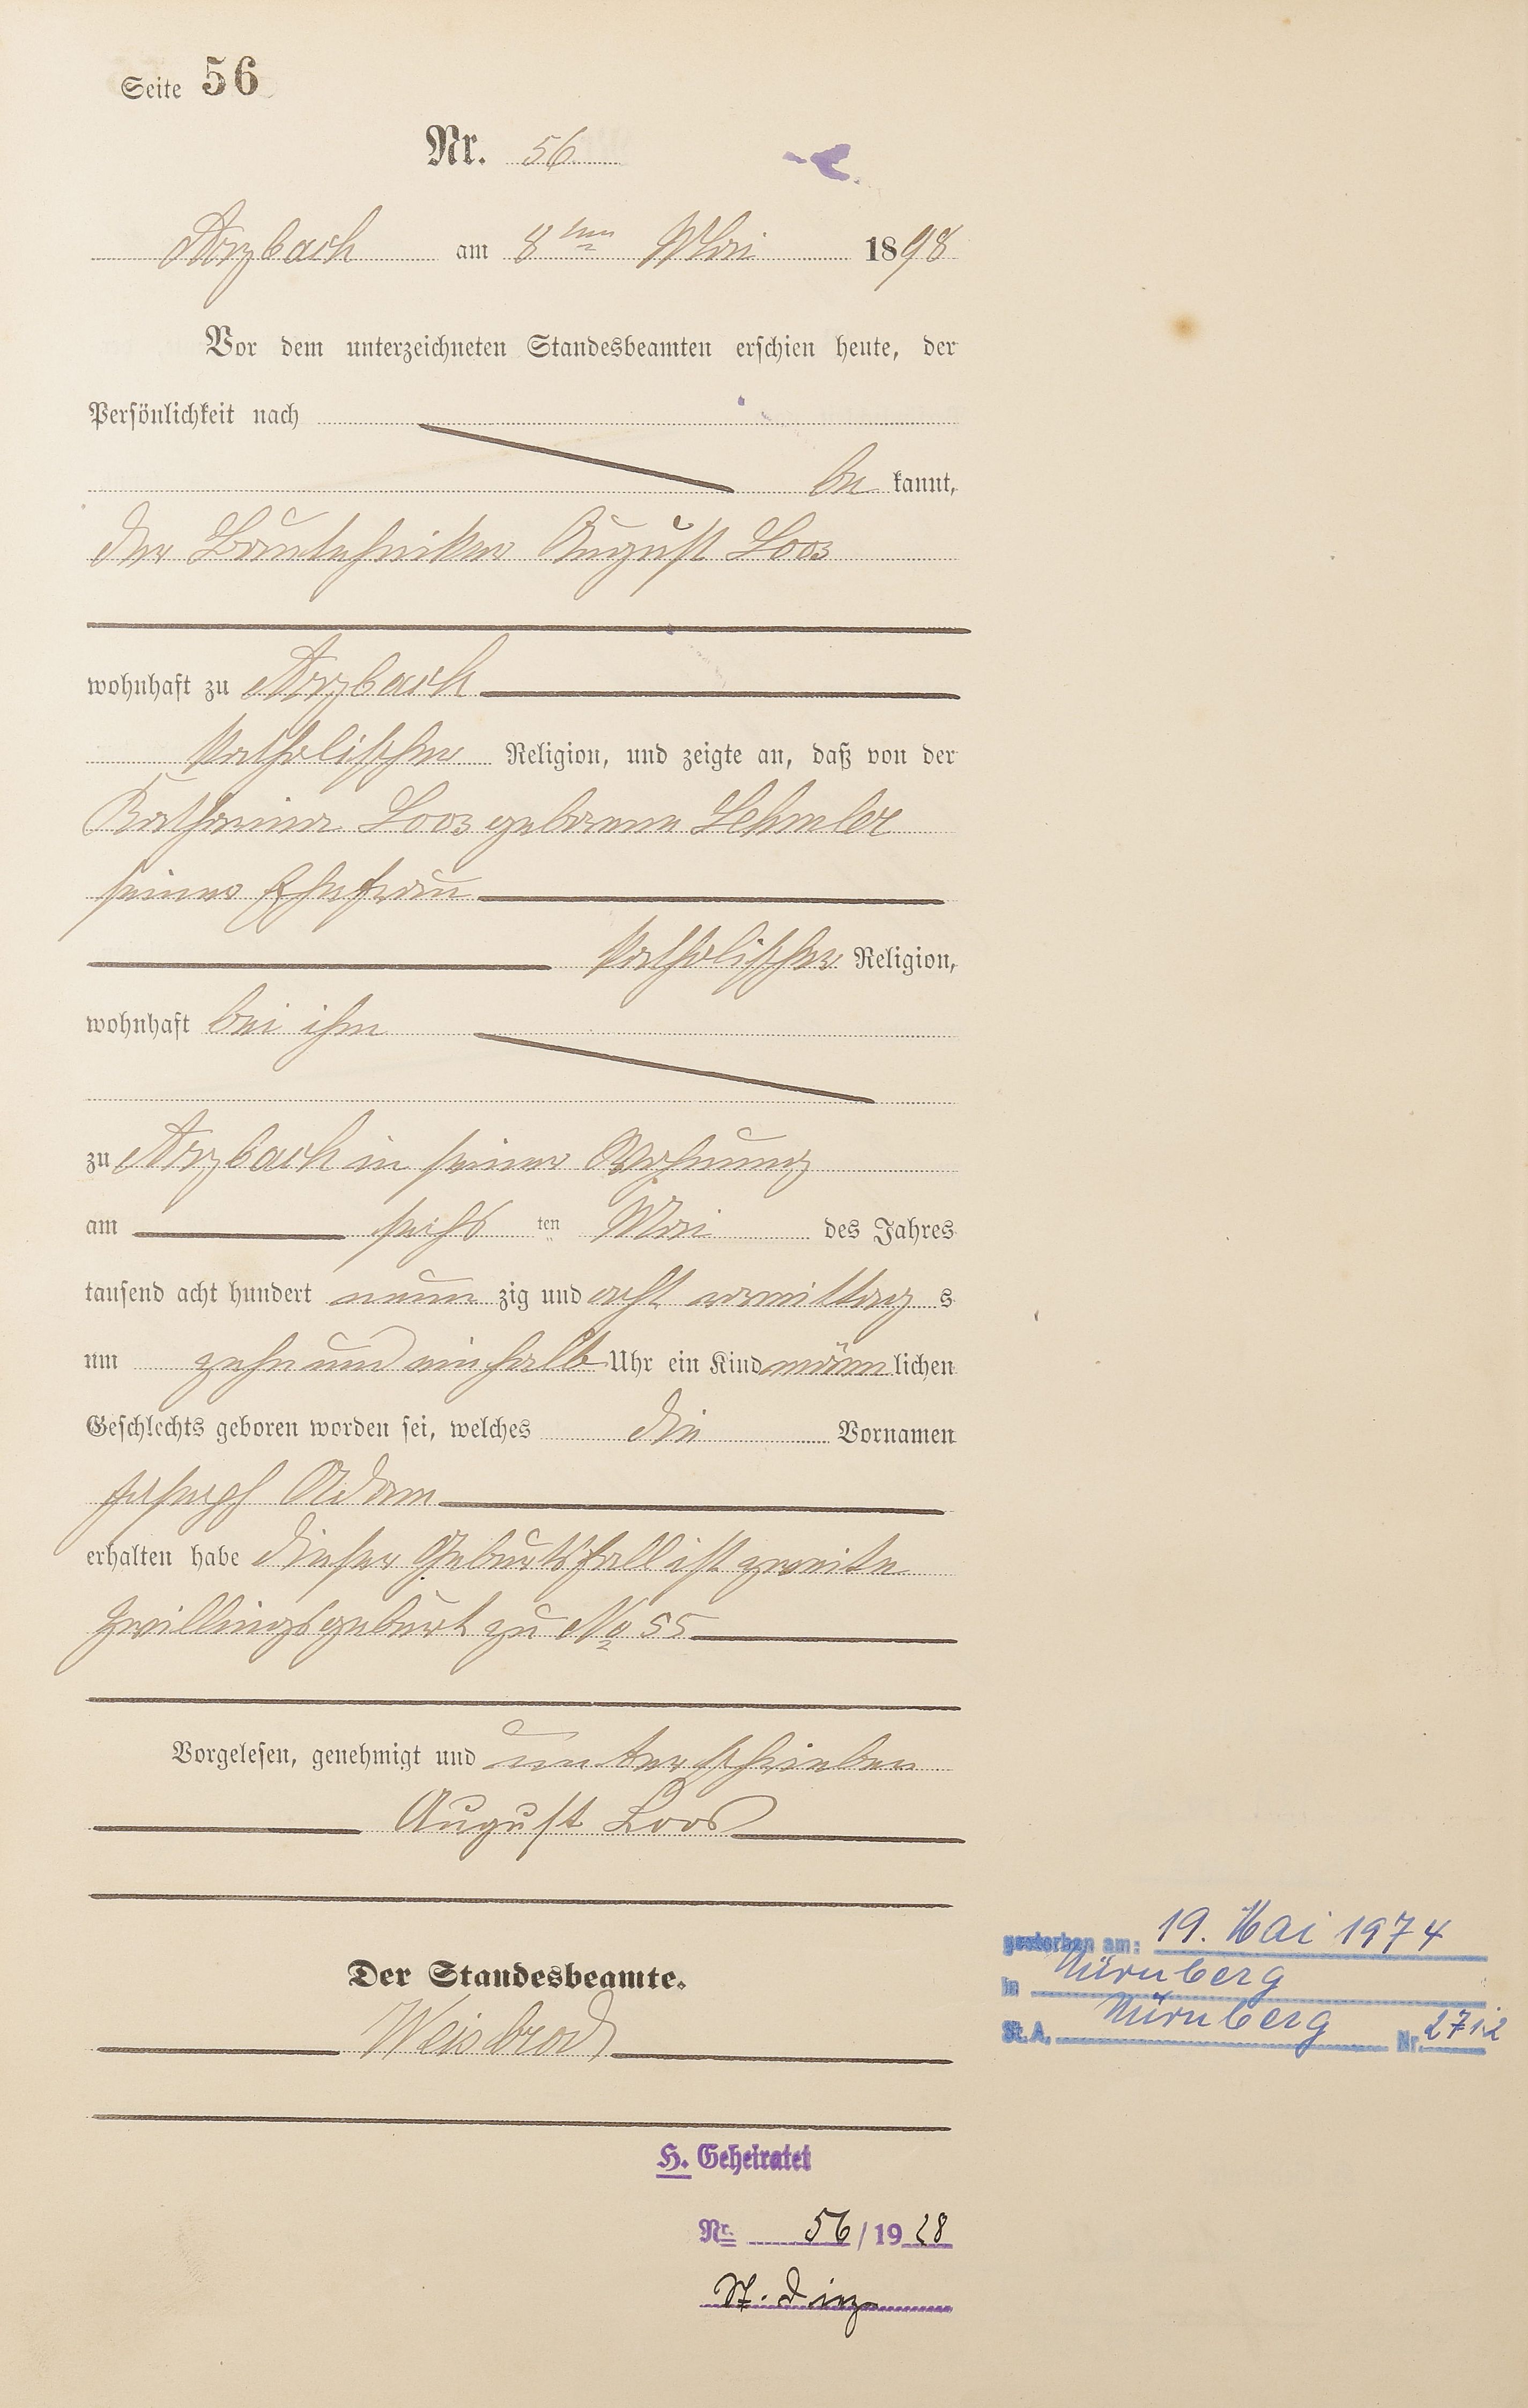 Seite 56
Nr. 56
Arzbach am 8ten Mai 1898
Vor dem unterzeichneten Standesbeamten erschien heute, der
Persönlichkeit nach
be kannt,
der Bautechniker August Loos
wohnhaft zu Arzbach
katholischer Religion, und zeigte an, daß von der
Katharina Loos geborene Lehmler
seiner Ehefrau
katholischer Religion,
wohnhaft bei ihm
zu Arzbach in seiner Wohnung
am sechs ten Mai des Jahres
tausend acht hundert neun zig und acht vormittag s
um zehn und ein halb Uhr ein Kind männ lichen
Geschlechts geboren worden sei, welches die Vornamen
Joseph Adam
erhalten habe dieser Geburtsfall ist zweite
Zwillingsgeburt zu No 55
Vorgelesen, genehmigt und unterschrieben
August Loos
Der Standesbeamte.
Weisbrod
gestorben am: 19. Mai 1974
in Nürnberg
St. A. Nürnberg Nr. 2712
H. Geheiratet
Nr. 56/1928
St. Diez